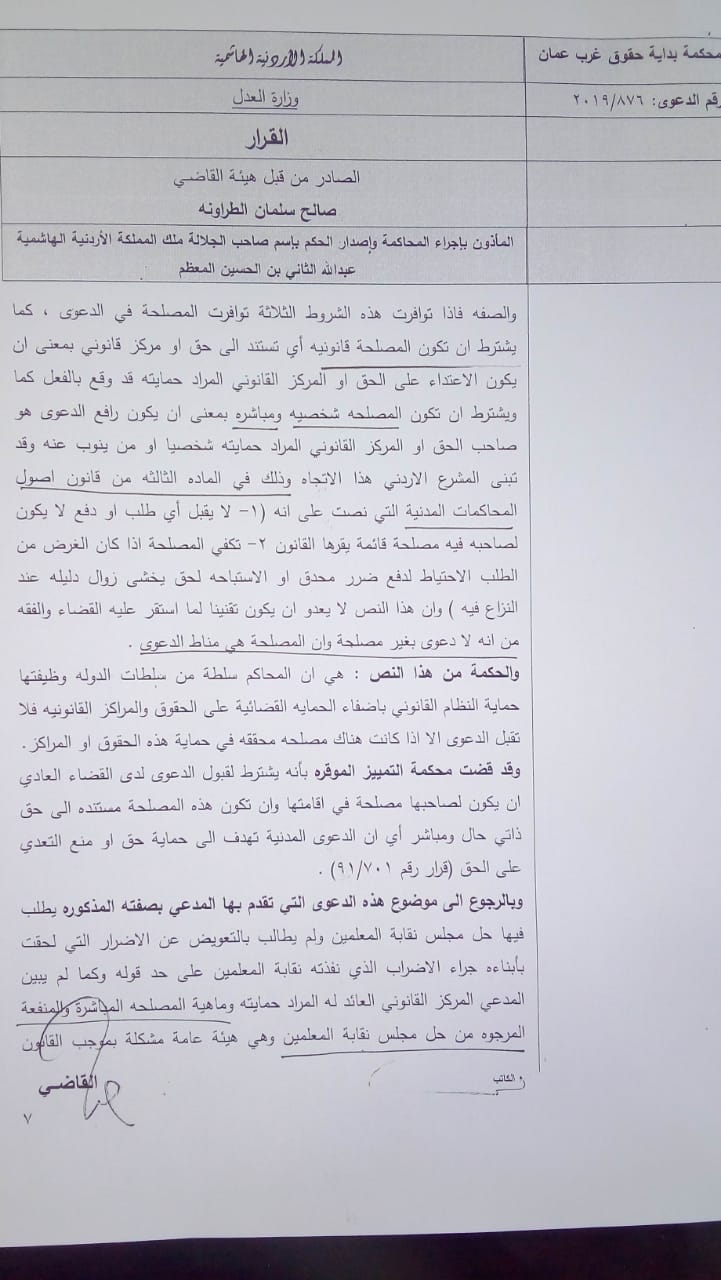 محكمة بداية حقوق غرب عمان
المملكة الأردنية الهاشمية
رقم الدعوى: ٢٠١٩/٨٧٦
وزارة العدل
القرار
الصادر من قبل هيئة القاضي
صالح سلمان الطراونه
المأذون بإجراء المحاكمة وإصدار الحكم بإسم صاحب الجلالة ملك المملكة الأردنية الهاشمية
عبدالله الثاني بن الحسين المعظم
والصفه فاذا توافرت هذه الشروط الثلاثة توافرت المصلحة في الدعوى ، كما
يشترط ان تكون المصلحة قانونيه أي تستند الى حق او مركز قانوني بمعنى ان
يكون الاعتداء على الحق او المركز القانوني المراد حمايته قد وقع بالفعل كما
ويشترط ان تكون المصلحه شخصيه ومباشره بمعنى ان يكون رافع الدعوى هو
صاحب الحق او المركز القانوني المراد حمايته شخصيا او من ينوب عنه وقد
تبنى المشرع الاردني هذا الاتجاه وذلك في الماده الثالثه من قانون اصول
المحاكمات المدنية التي نصت على انه (١- لا يقبل أي طلب او دفع لا يكون
لصاحبه فيه مصلحة قائمة يقرها القانون ٢- تكفي المصلحة اذا كان الغرض من
الطلب الاحتياط لدفع ضرر محدق او الاستباحه لحق يخشى زوال دليله عند
النزاع فيه ) وان هذا النص لا يعدو ان يكون تقنينا لما استقر عليه القضاء والفقه
من انه لا دعوى بغير مصلحة وان المصلحة هي مناط الدعوى .
والحكمة من هذا النص : هي ان المحاكم سلطة من سلطات الدوله وظيفتها
حماية النظام القانوني باضفاء الحمايه القضائية على الحقوق والمراكز القانونيه فلا
تقبل الدعوى الا اذا كانت هناك مصلحه محققه في حماية هذه الحقوق او المراكز.
وقد قضت محكمة التمييز الموقره بأنه يشترط لقبول الدعوى لدى القضاء العادي
ان يكون لصاحبها مصلحة في اقامتها وان تكون هذه المصلحة مستنده الى حق
ذاتي حال ومباشر أي ان الدعوى المدنية تهدف الى حماية حق او منع التعدي
على الحق (قرار رقم ٩١/٧٠١) .
وبالرجوع الى موضوع هذه الدعوى التي تقدم بها المدعي بصفته المذكوره يطلب
فيها حل مجلس نقابة المعلمين ولم يطالب بالتعويض عن الاضرار التي لحقت
بأبناءه جراء الاضراب الذي نفذته نقابة المعلمين على حد قوله وكما لم يبين
المدعي المركز القانوني العائد له المراد حمايته وماهية المصلحه المباشرة والمنفعة
المرجوه من حل مجلس نقابة المعلمين وهي هيئة عامة مشكلة بموجب القانون
الكاتب
القاضي
٧